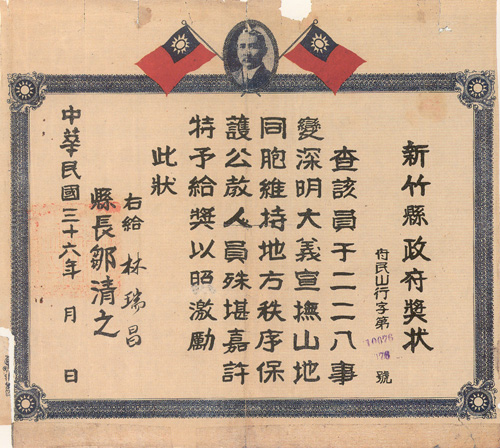 新竹縣政府獎狀
府民山行字第10676號
76
查該員于二二八事
變深明大義宣撫山地
同胞維持地方秩序保
護公教人員殊堪嘉許
特予給獎以照激勵
此狀
右給 林瑞昌
縣長鄒清之
中華民國三十六年 月 日